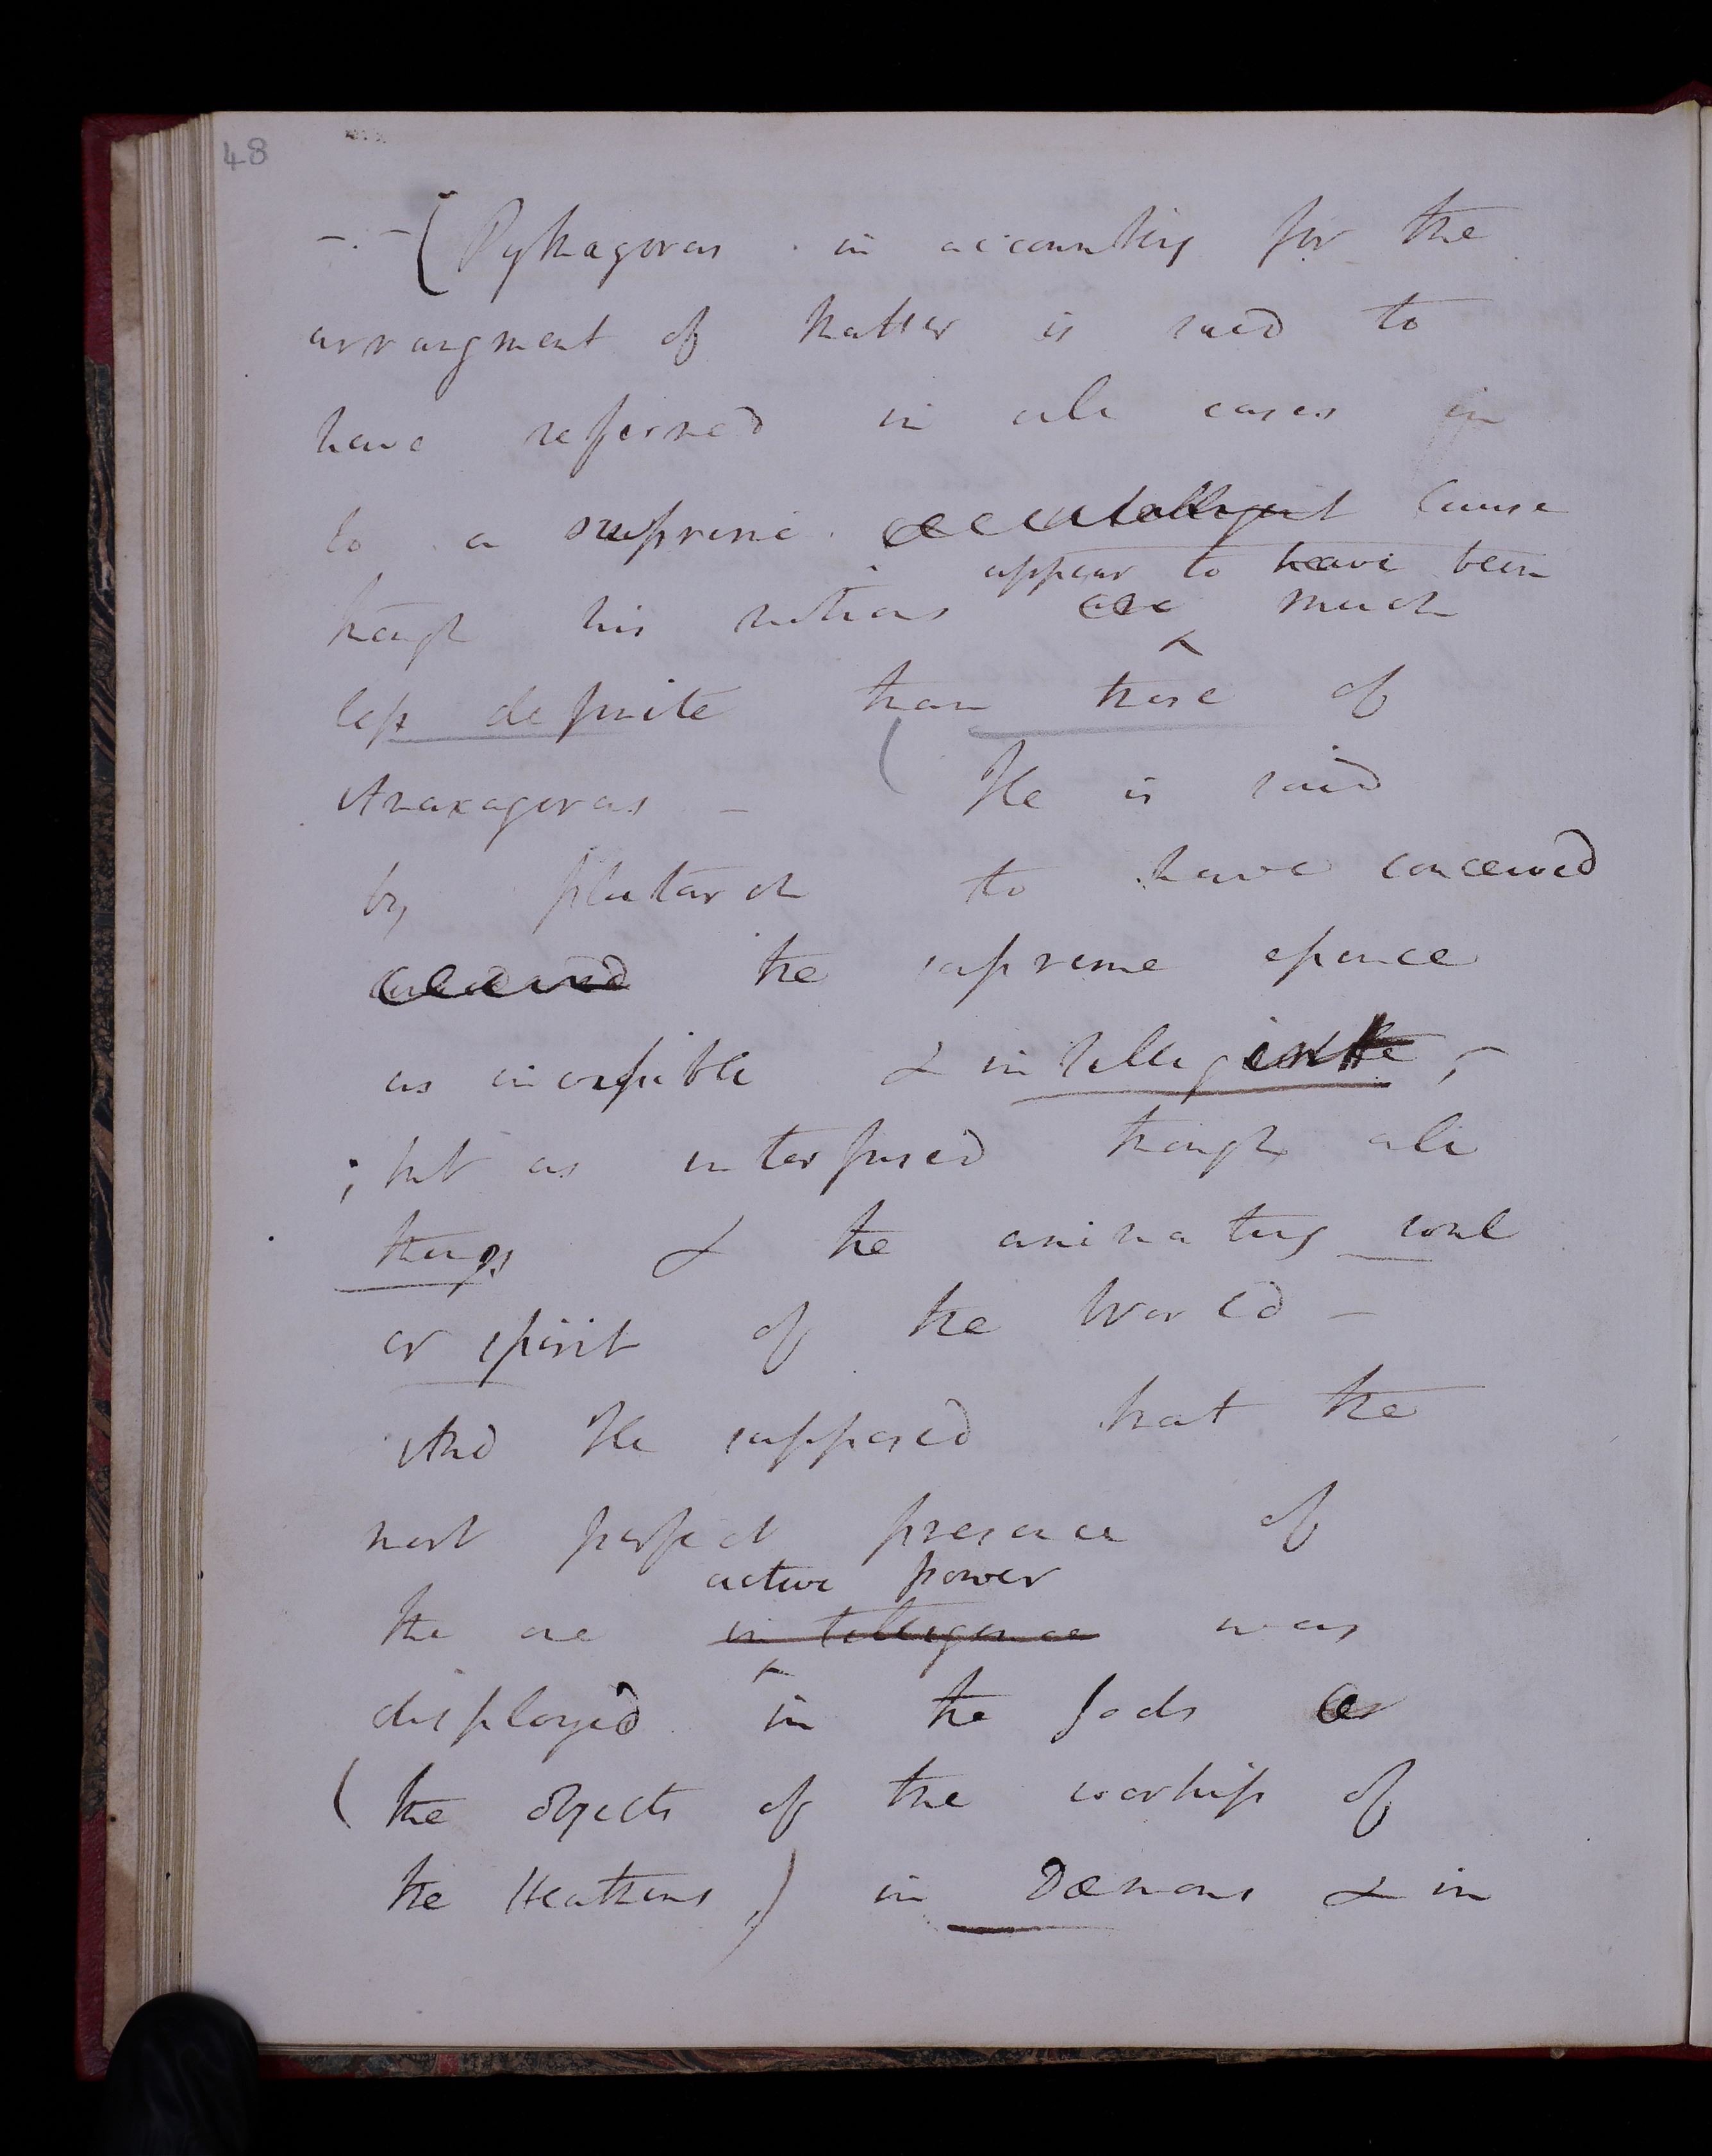 48
-.- (Pythagoras in accounting for the
arrangment of Matter is said to
have referred in all cases in
to a supreme intelligent Cause
appear to have been
though his notions are much
less definite than those of
Anaxagoras - ( He is said
by plutarch to have conceived
the supreme essence
as invisible & intelligent,-
; but as interfused though all
things & the animating soul
or spirit of the World -
And He supposed that the
most perfect presence of
active power
the one intelligence was
displayed in the Gods or
(the objects of the worship of
the Heathens,) in Dæmons & in